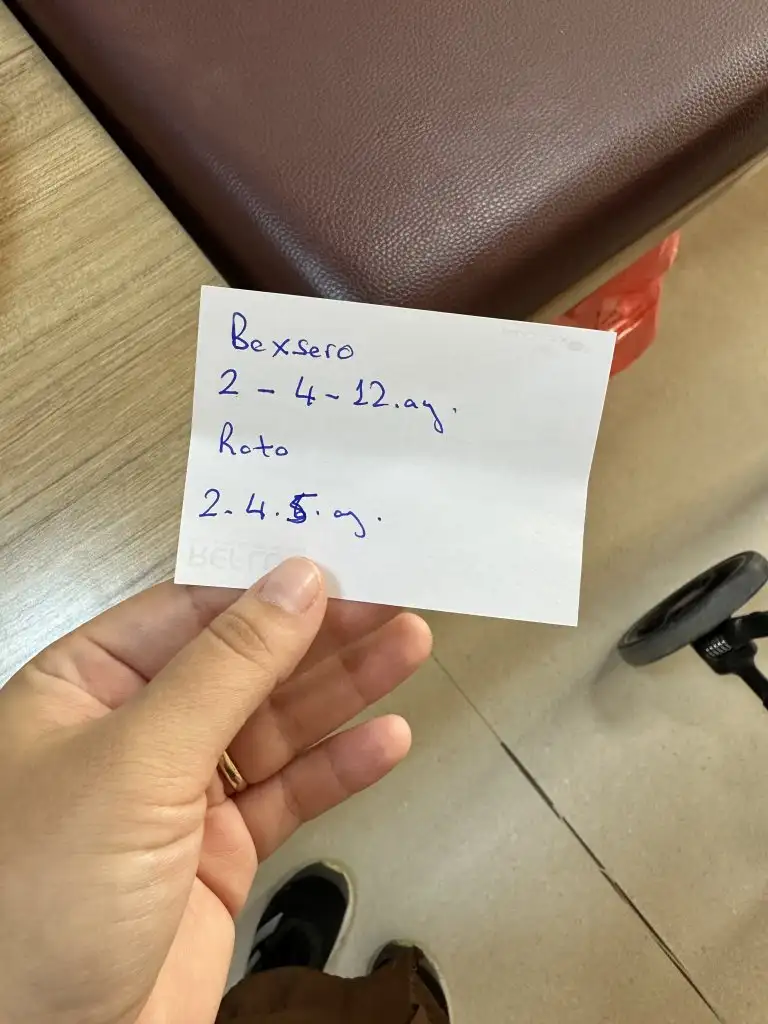 Bexsero
2 - 4 - 12.ay.
Rota
2. 4. 5. ay.